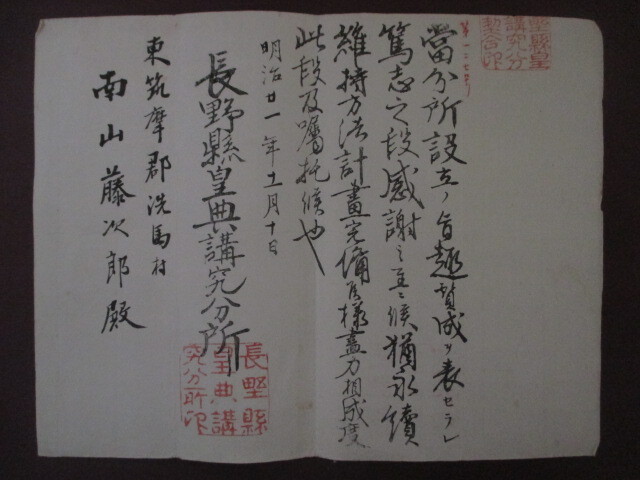 第一二七号
當分所設立ノ旨趣賛成ヲ表セラレ
篤志之段感謝之至ニ候猶永續
維持方法計畫完備候様盡力相成度
此段及嘱托候也
明治廿一年十一月十日
長野縣皇典講究分所
長野縣
皇典講
究分所印
東筑摩郡洗馬村
南山藤次郎殿